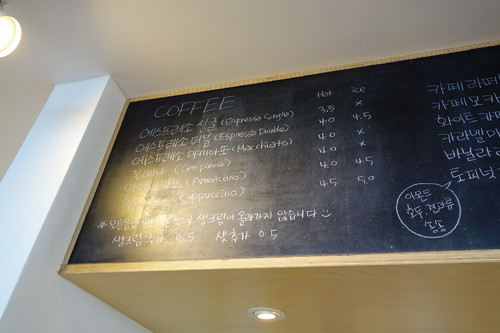 COFFEE Hot ice
에스프레소 싱글 (Espresso Single) 3.5 x
에스프레소 더블 (Espresso Double) 4.0 4.5
에스프레소 마끼아또 (Macchiato) 4.0 x
(Con panna) 4.0 x
(Americano) 4.0 4.5
4.5 5.0
생크림이 올라가지 않습니다
생크림 추가 0.5 샷추가 0.5
카페라떼
카페모카
화이트카페
카라멜
바닐라
토피넛
아몬드
호두, 견과류
송송